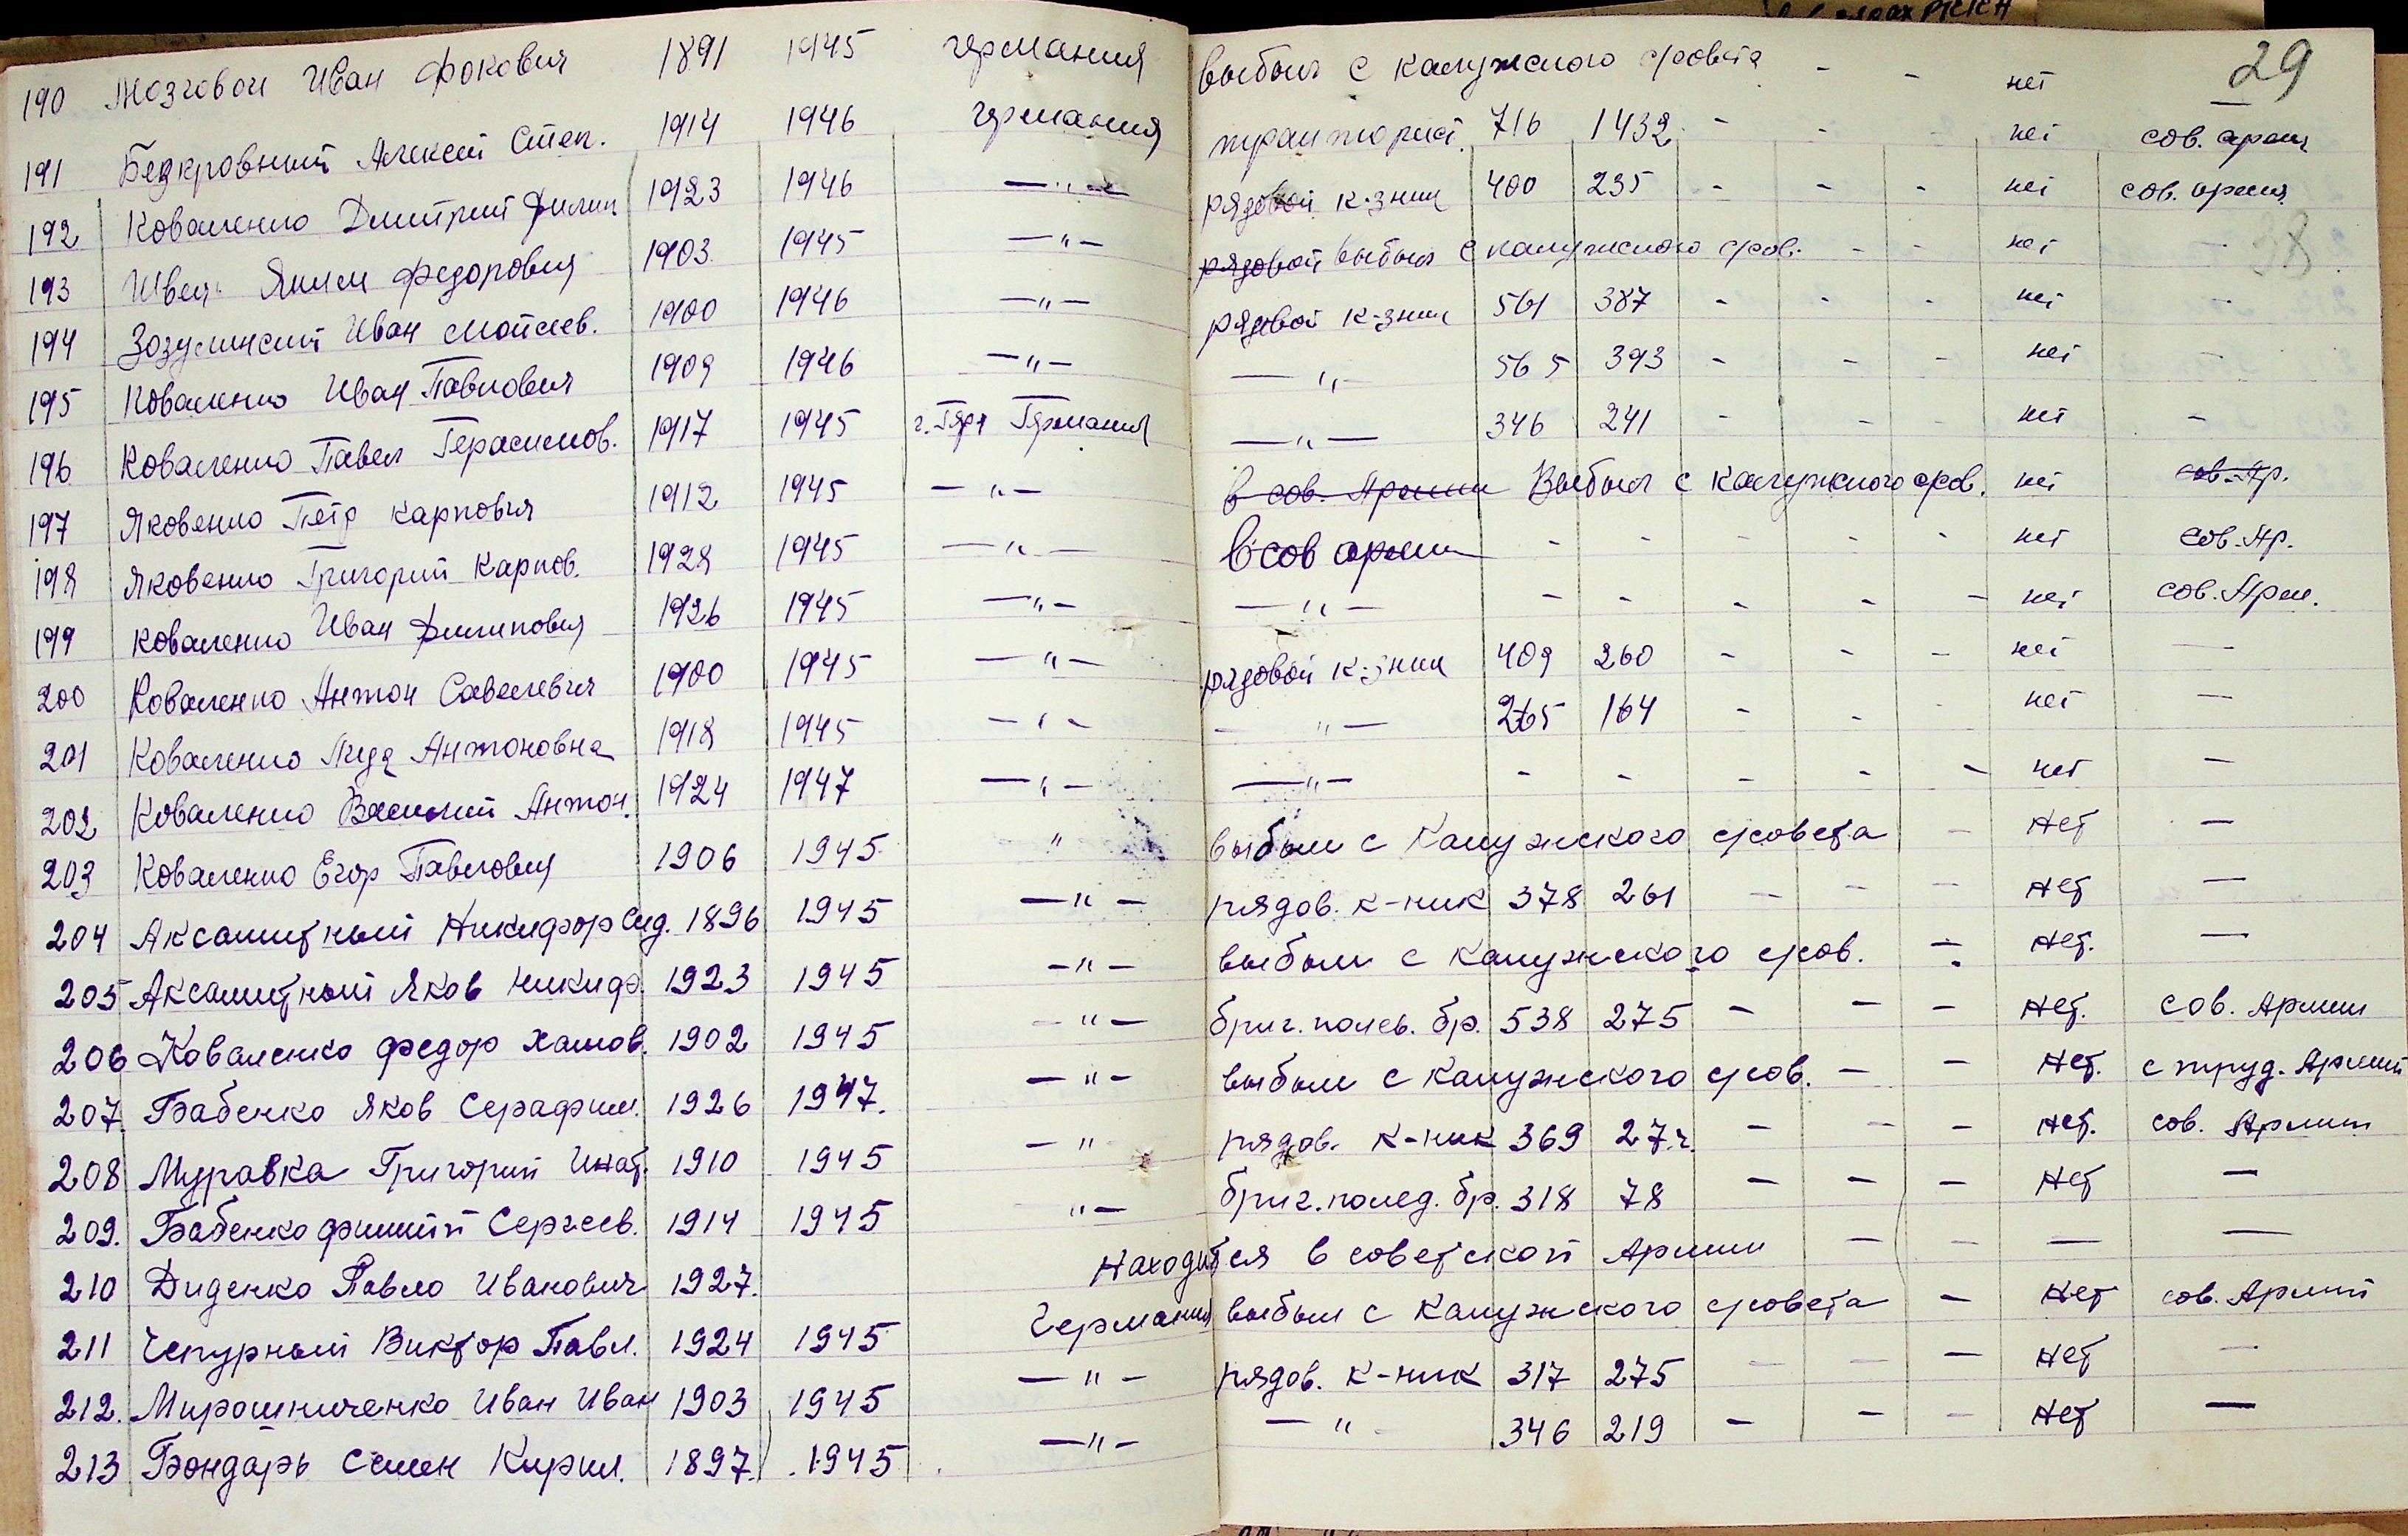 29
190 Мозговой Иван Фокович 1891 1945 германия выбыл с калужского с/совета - - нет
191 Безкровный Алексей Степ. 1914 1946 германия тракторист. 716 1432 - - - нет сов. армия
192 Коваленко Дмитрий Филип 1923 1946 —"— рядовой к-зник 400 235 - - - нет сов. армия
193 Швец Яким Федорович 1903 1945 —"— рядовой выбыл с калужского с/сов. - - нет —
194 Зозулинский Иван Мойсеев. 1900 1946 —"— рядовой к-зник 561 387 - - - нет -
195 Коваленко Иван Павлович 1909 1946 —"— —"— 565 393 - - - нет -
196 Коваленко Павел Герасимов. 1917 1945 Германия —"— 346 241 - - - нет -
197 Яковенко Пётр Карпович 1912 1945 —"— в сов. Армии Выбыл с калужского с/сов. нет сов. Ар.
198 Яковенко Григорий Карпов. 1928 1945 —"— в сов армии - - - - - нет сов. Ар.
199 Коваленко Иван Филипович 1926 1945 —"— —"— - - - - - нет сов. Арм.
200 Коваленко Антон Савелевич 1900 1945 —"— рядовой к-зник 409 260 - - - нет —
201 Коваленко Лида Антоновна 1918 1945 —"— —"— 265 164 - - - нет —
202 Коваленко Василий Антон. 1924 1947 —"— —"— - - - - - нет —
203 Коваленко Егор Павлович 1906 1945 " выбыл с Калужского с/совета - Нет —
204 Аксамитный Никифор Сид. 1896 1945 —"— рядов. к-ник 378 261 - - - Нет —
205 Аксамитный Яков Никиф. 1923 1945 —"— выбыл с Калужского с/сов. - Нет. —
206 Коваленко Федор Хамов. 1902 1945 —"— бриг. полев. бр. 538 275 - - - Нет. сов. Армии
207. Бабенко Яков Серафим. 1926 1947. —"— выбыл с Калужского с/сов. - - Нет. с труд. Армии
208 Муравка Григорий Игнат. 1910 1945 —" рядов. к-ник 369 27. - - - Нет. сов. Армии
209. Бабенко Филипп Сергеев. 1914 1945 "— бриг. полев. бр. 318 78 - - - Нет —
210 Диденко Павло Иванович 1927. Находится в советской Армии - - — —
211 Чепурный Виктор Павл. 1924 1945 Германия выбыл с Калужского с/совета - Нет сов. Армии
212. Мирошниченко Иван Иван 1903 1945 —"— рядов. к-ник 317 275 - - - Нет -
213 Бондарь Семен Кирил. 1897. 1945 —"— —" 346 219 - - - Нет —